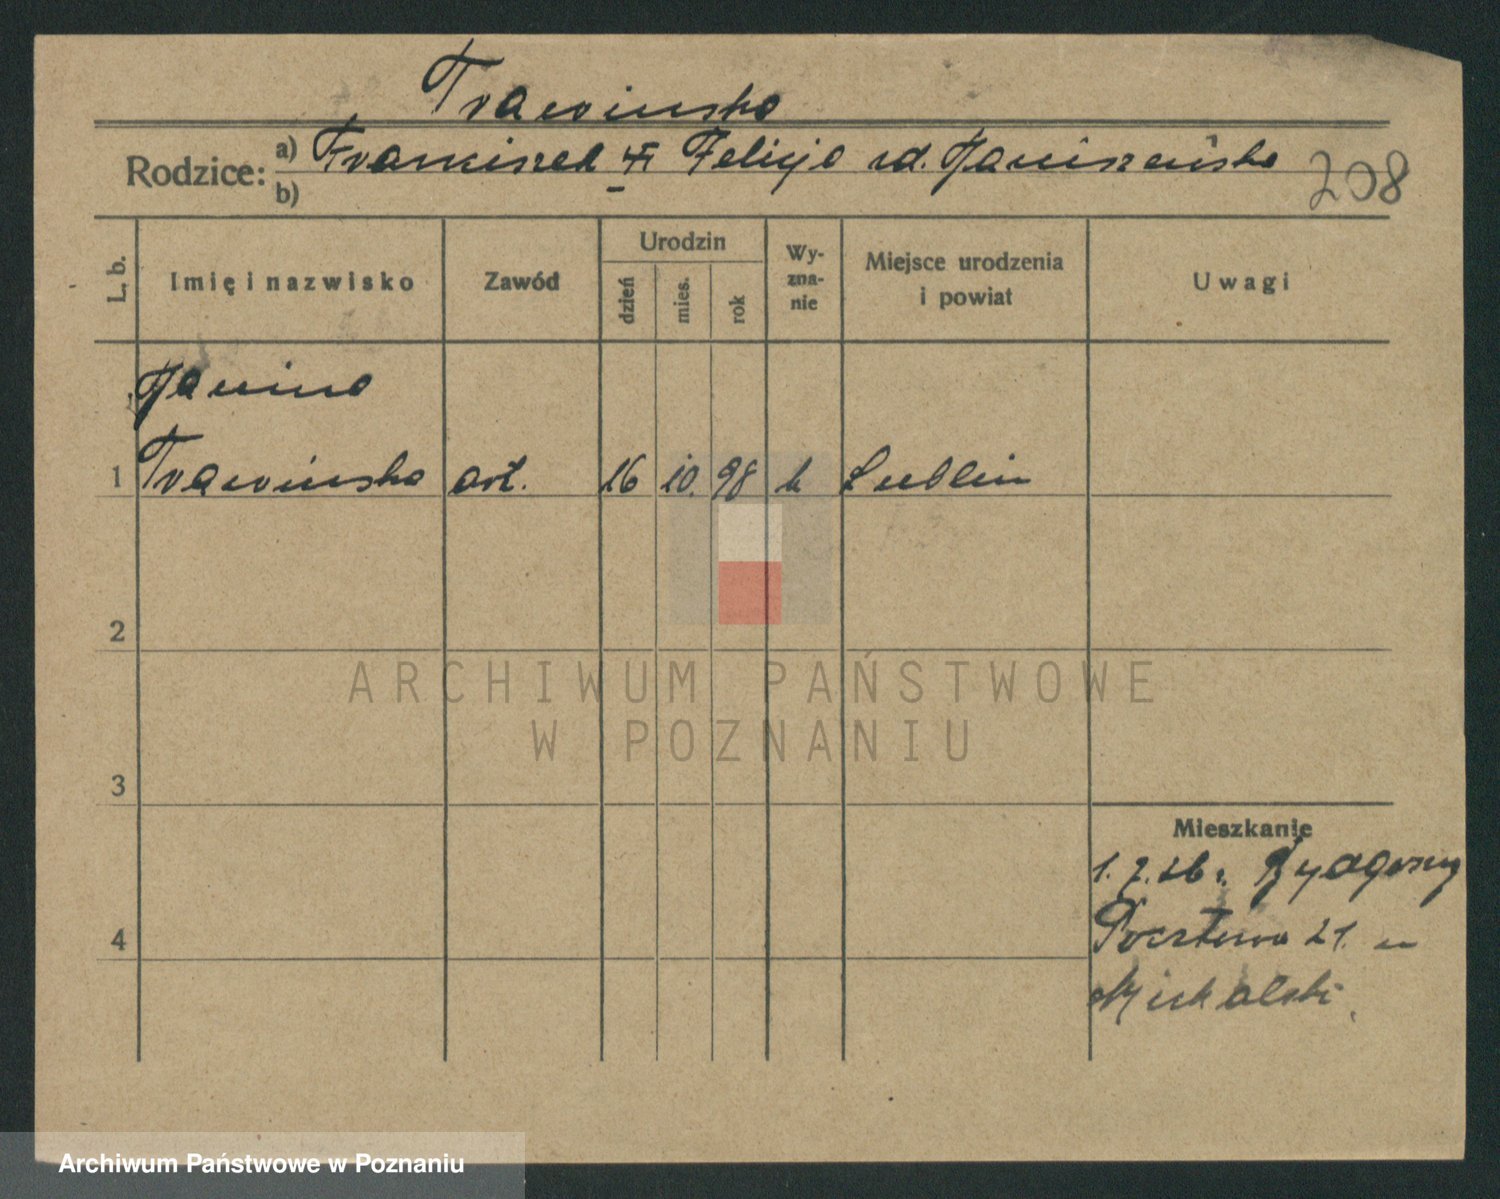 Trawinska
Rodzice: a) Franciszek Felicja rd. Janiszewska
b)
208
L. b.
Imię i nazwisko
Zawód
Urodzin
dzień
mies.
rok
Wy-
zna-
nie
Miejsce urodzenia
i powiat
Uwagi
Janina
1 Trawinska art. 16 10. 98 k Lublin
2
ARCHIWUM PAŃSTWOWE
W POZNANIU
3
Mieszkanie
1.7.26 r. Bydgoszcz
4 Pocztowa 21.
Michalski
Archiwum Państwowe w Poznaniu